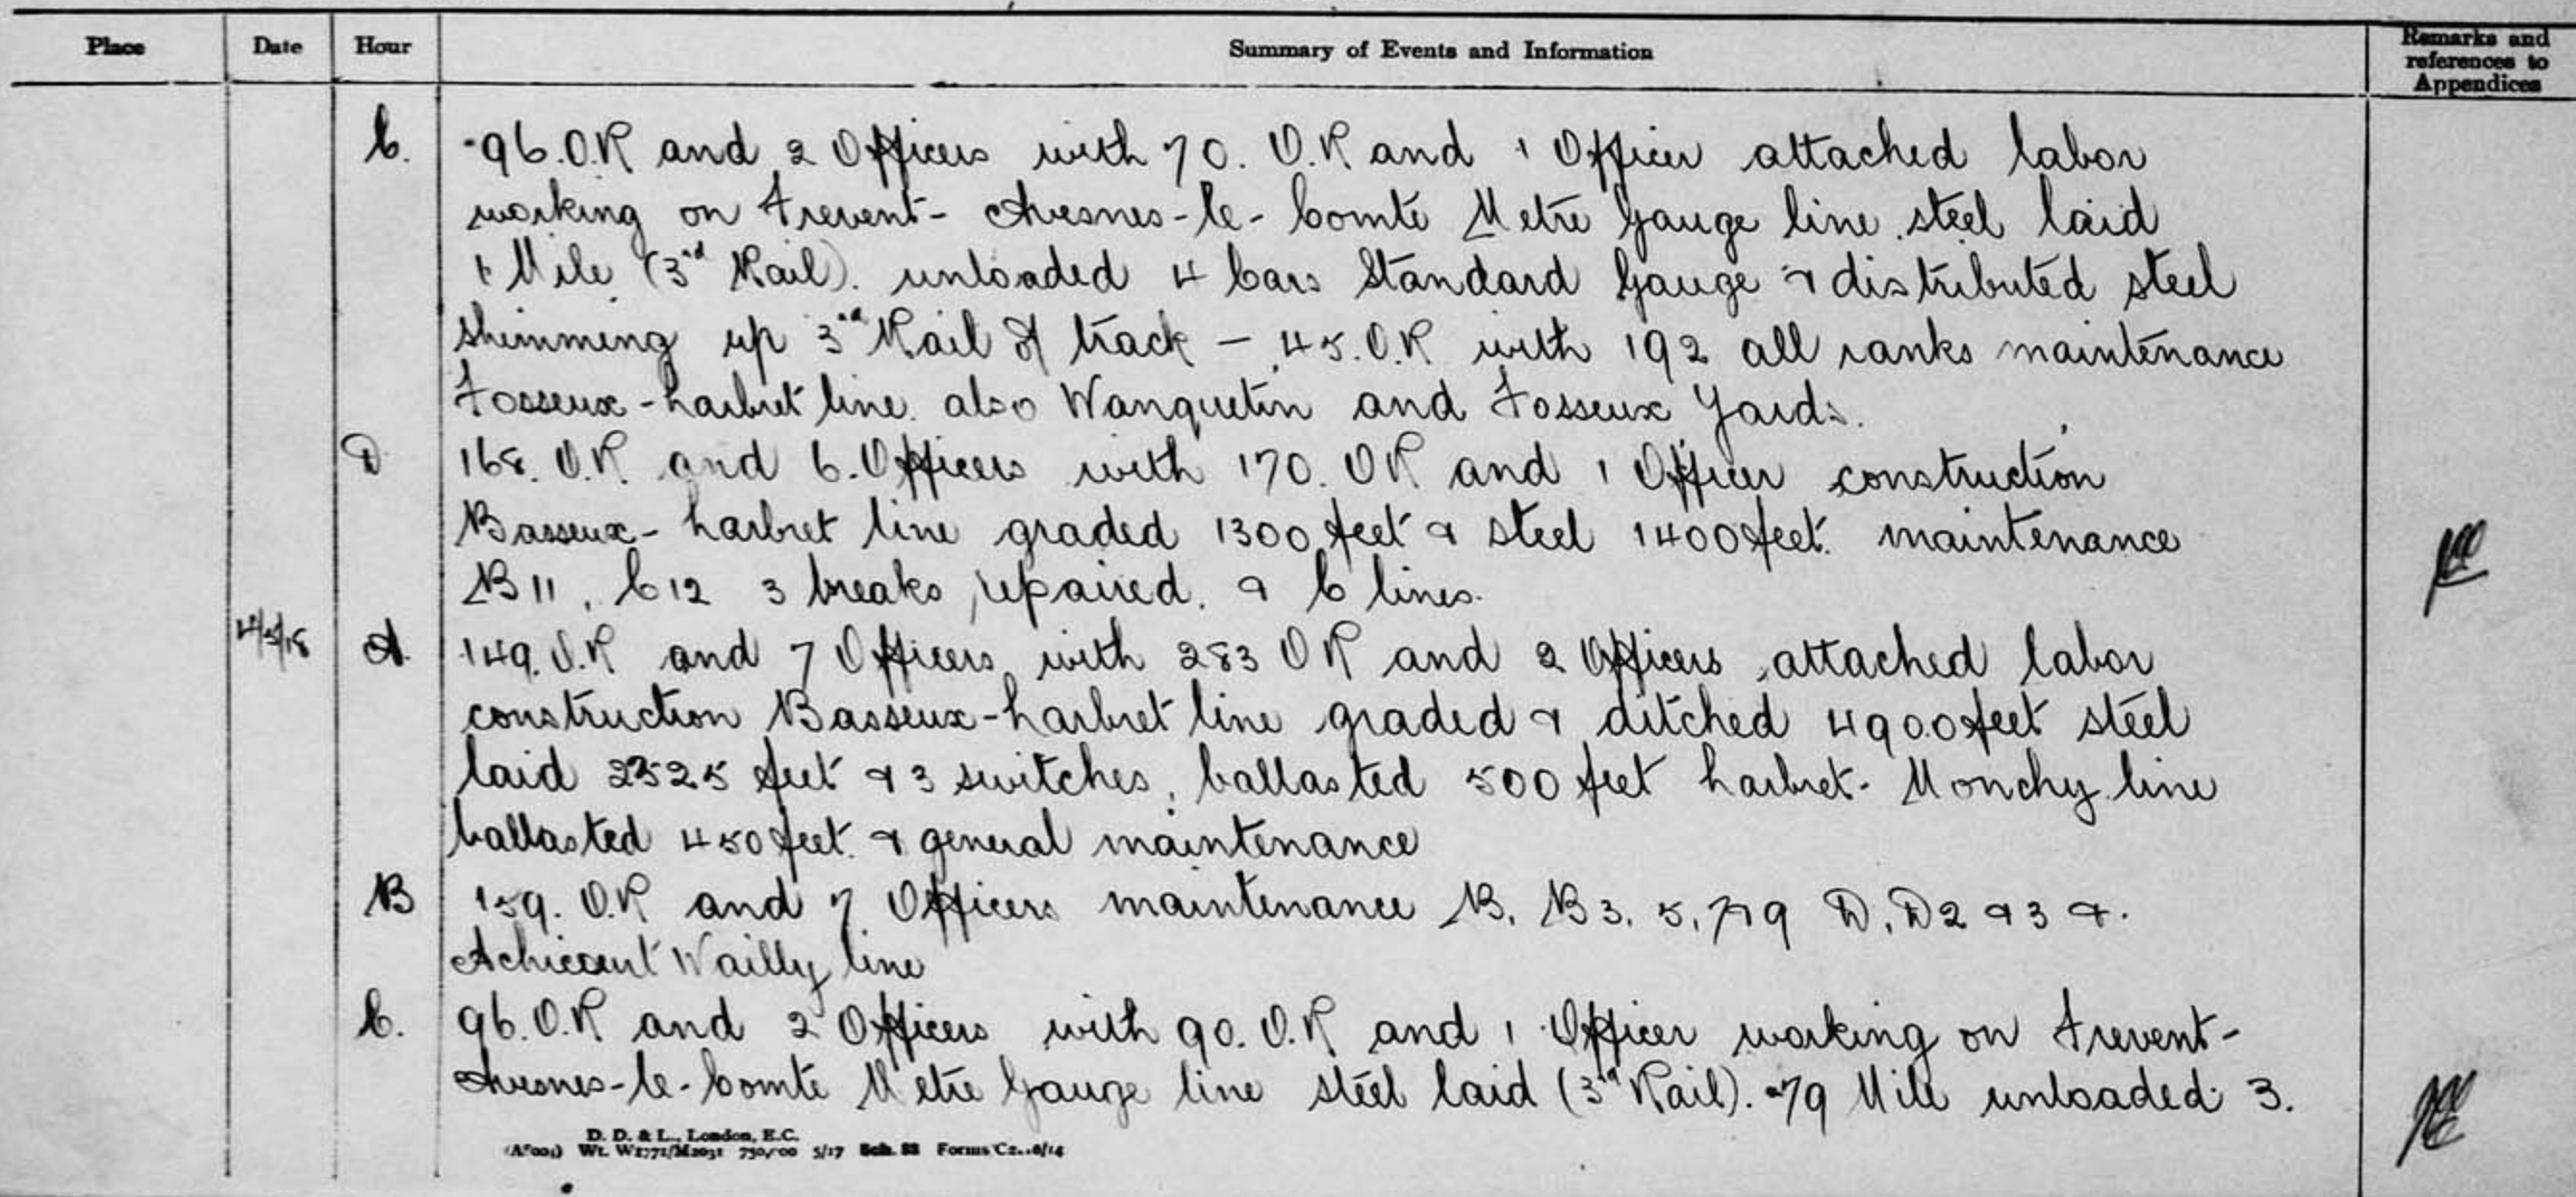 Place Date Hour Summary of Events and Information Remarks and references to Appendices
C. 96. O.R and 2 Officers with 70. O.R and 1 Officer attached labor
working on Frevent- Avesnes-le-Comte Metre Gauge line steel laid
1 Mile (3rd Rail). unloaded 4 Cars Standard Gauge & distributed steel
shimming up 3rd Rail of track - 45. O.R with 192 all ranks maintenance
Fosseux-Larbret line also Wanquetin and Fosseux Yards.
D 168. O.R and 6. Officers with 170. OR and 1 Officer construction
Basseux- Larbret line graded 1300 feet & steel 1400 feet. maintenance
B11, C12 3 breaks repaired. & C lines.
4/5/18 A. 149. O.R and 7 Officers with 283 OR and 2 Officers attached labor
construction Basseux-Larbret line graded & ditched 4900 feet steel
laid 2325 feet & 3 switches, ballasted 500 feet Larbret- Monchy line
ballasted 450 feet. & general maintenance
B 159. O.R and 7 Officers maintenance B, B3, 5, 7 & 9 D, D2 & 3 &.
Achicourt Wailly line
C. 96. O.R and 2 Officers with 90. O.R and 1 Officer working on Frevent-
Avesnes-le-Comte Metre Gauge line steel laid (3rd Rail). .79 Mile unloaded 3.
D. D. & L., London, E.C.
Wt. W1771/M2031 750,000 5/17 Sch. 52 Forms